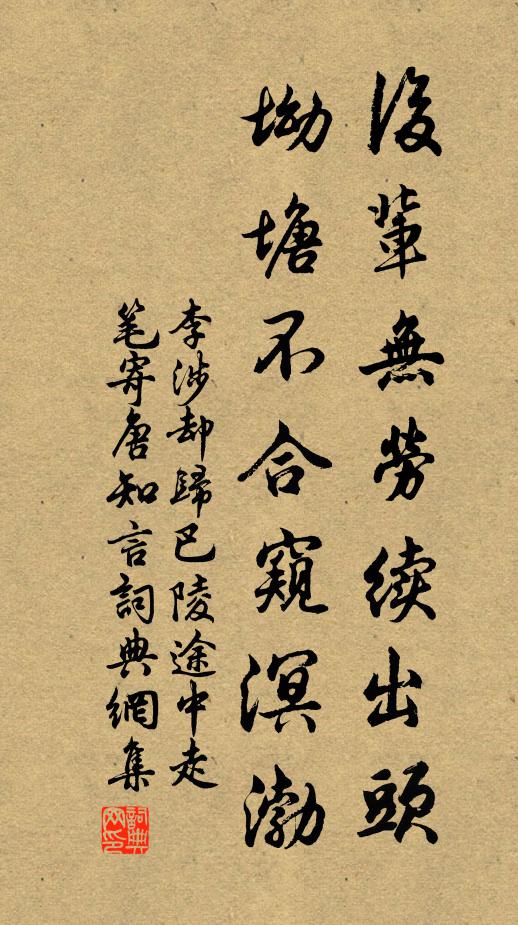 後輩無勞續出頭
坳塘不合窺溟渤
李涉却歸巴陵途中走
笔寄唐知言詞典網集
詞典网印